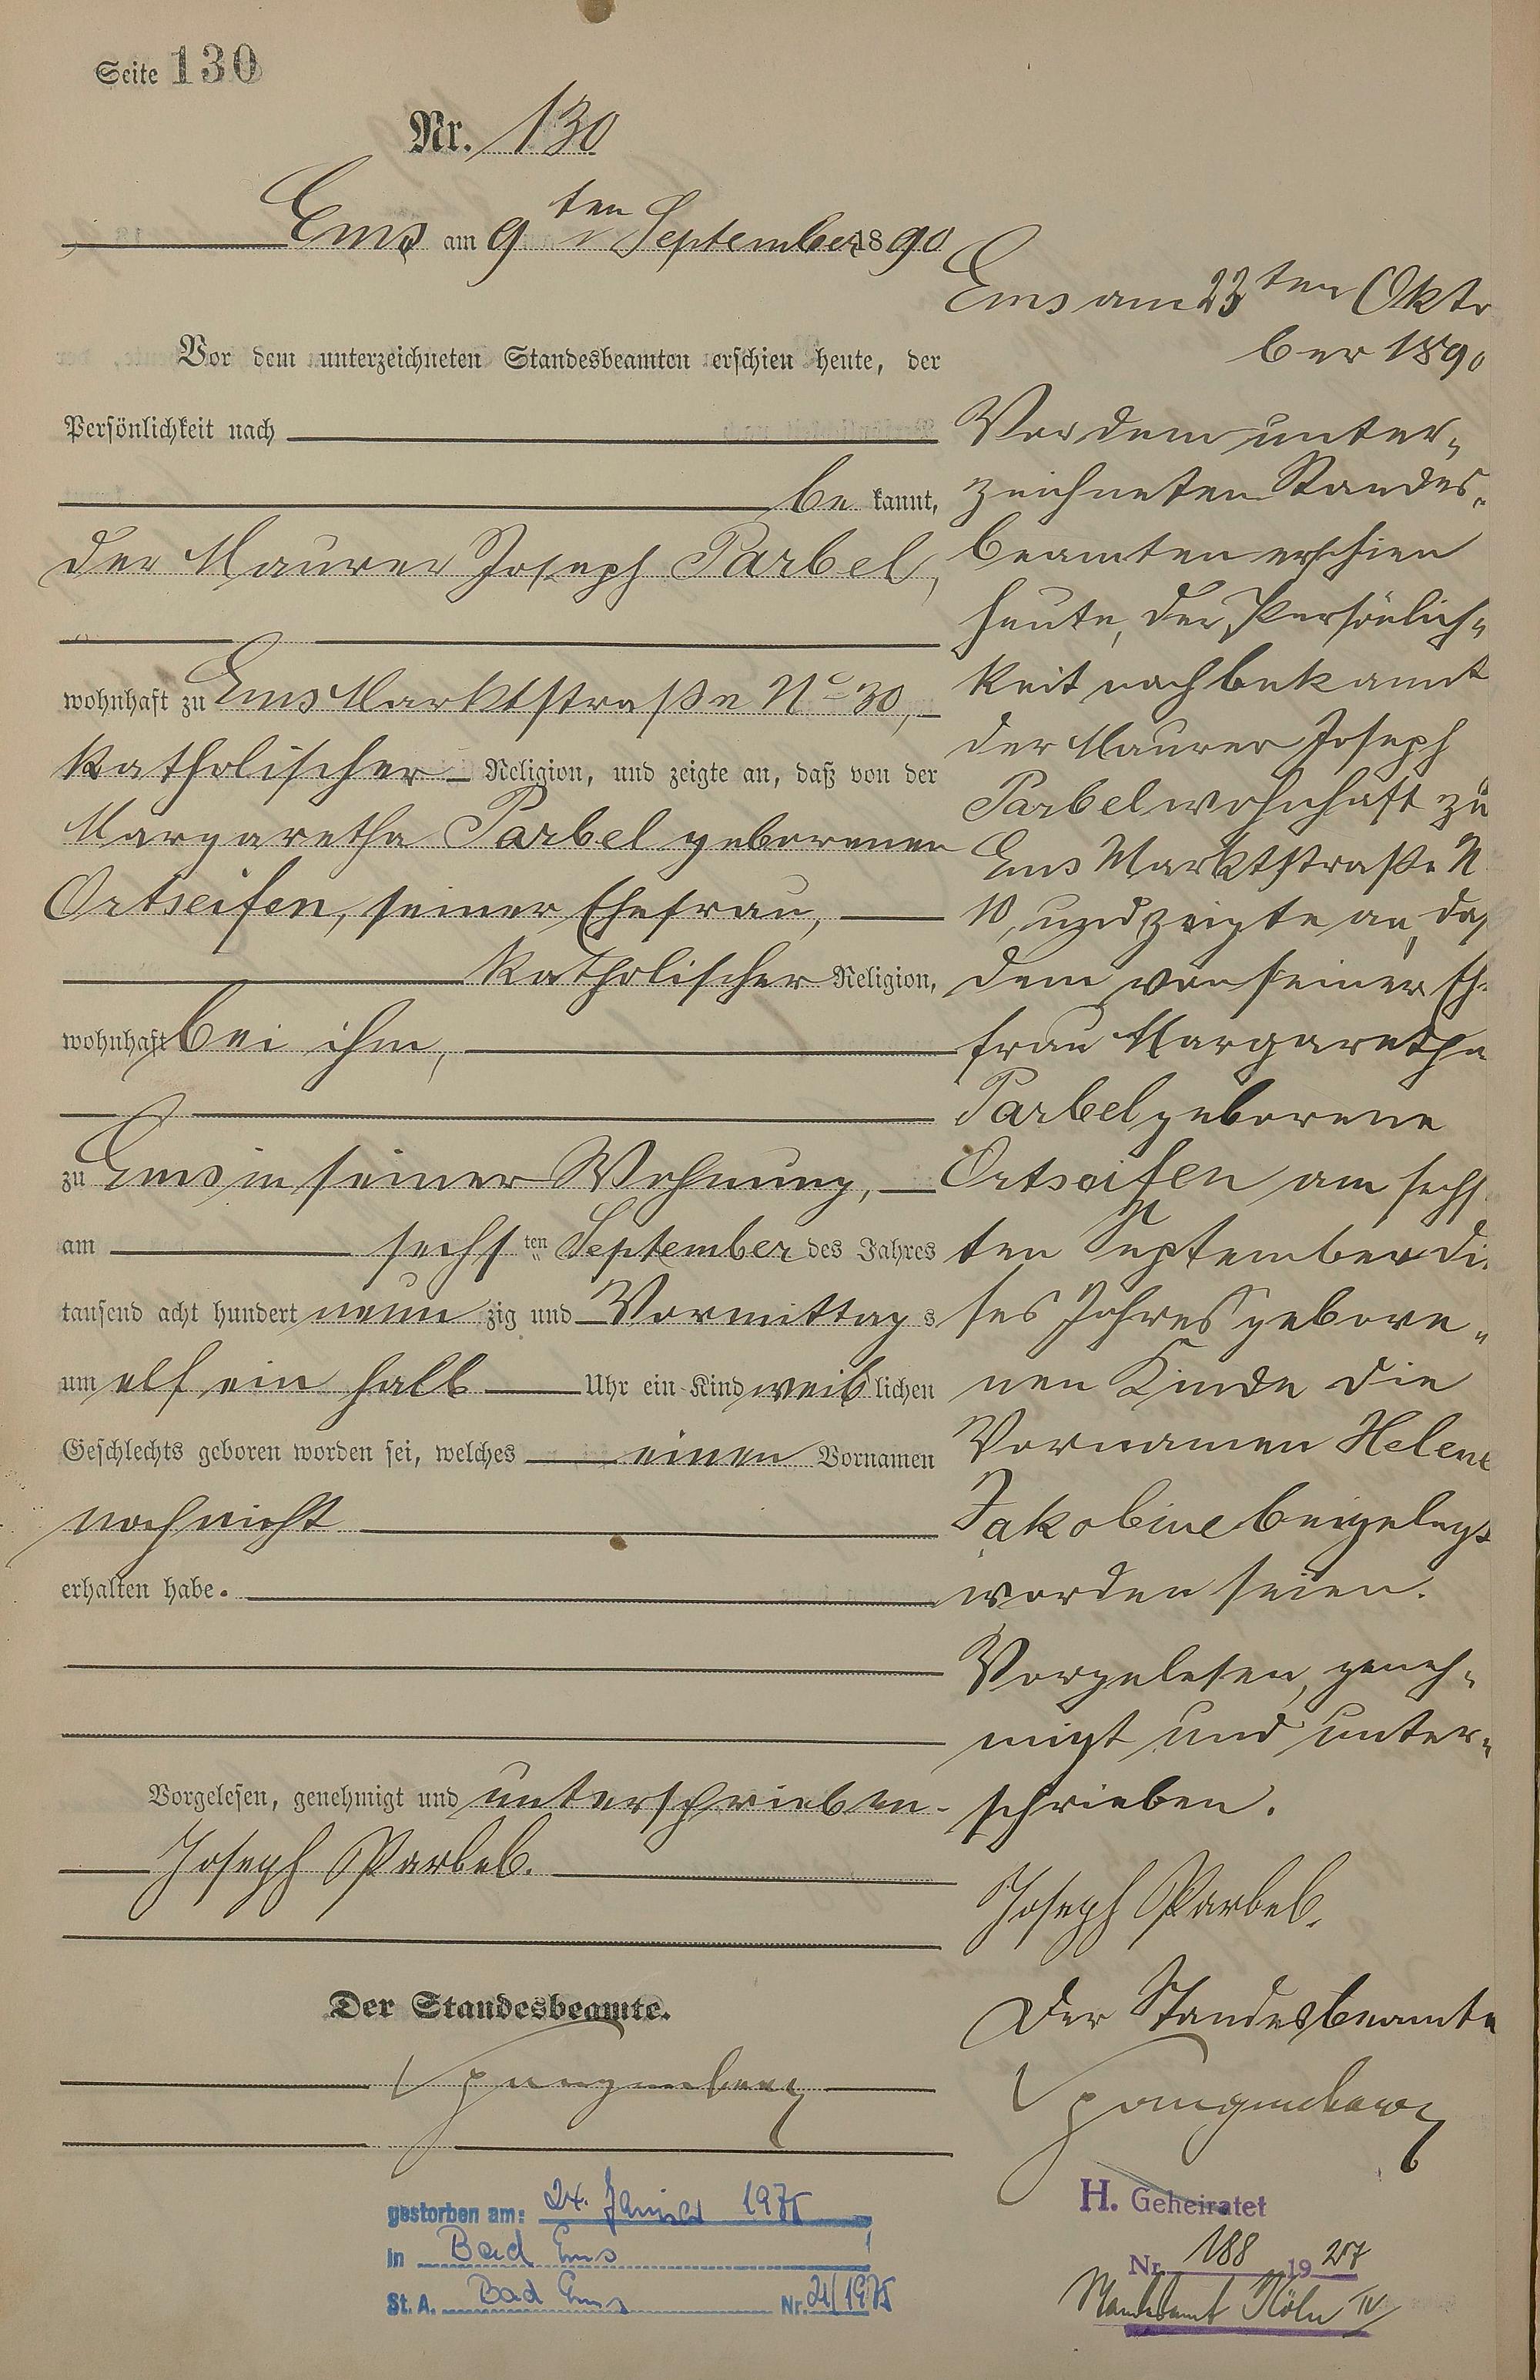 Seite 130
Nr. 130
Ems am 9ten September 1890
Vor dem unterzeichneten Standesbeamten erschien heute, der
Persönlichkeit nach
be kannt,
der Maurer Joseph Parbel,
wohnhaft zu Ems Marktstraße No 30,
katholischer Religion, und zeigte an, daß von der
Margaretha Parbel geborenen
Ortseifen, seiner Ehefrau,
katholischer Religion,
wohnhaft bei ihm,
zu Ems in seiner Wohnung,
am sechsten September des Jahres
tausend acht hundert neun zig und Vormittags
um elf ein halb Uhr ein Kind weiblichen
Geschlechts geboren worden sei, welches einen Vornamen
noch nicht
erhalten habe.
Vorgelesen, genehmigt und unterschrieben.
Joseph Parbel.
Der Standesbeamte.
Spangenberg
gestorben am: 24. Januar 1975
in Bad Ems
St. A. Bad Ems Nr. 21/1975
Ems am 23ten Okto
ber 1890
Vor dem unter-
zeichneten Standes-
beamten erschien
heute, der Persönlich-
keit nach bekannt
der Maurer Joseph
Parbel wohnhaft zu
Ems Marktstraße N
10, und zeigte an, daß
dem von seiner Eh-
frau Margaretha
Parbel geborene
Ortseifen am sechs
ten September die
ses Jahres gebore-
nen Kinde die
Vornamen Helene
Jakobine beigelegt
worden seien.
Vorgelesen, geneh-
migt und unter-
schrieben.
Joseph Parbel.
Der Standesbeamte
Spangenberg
H. Geheiratet
Nr. 188 19
Standesamt Köln IV